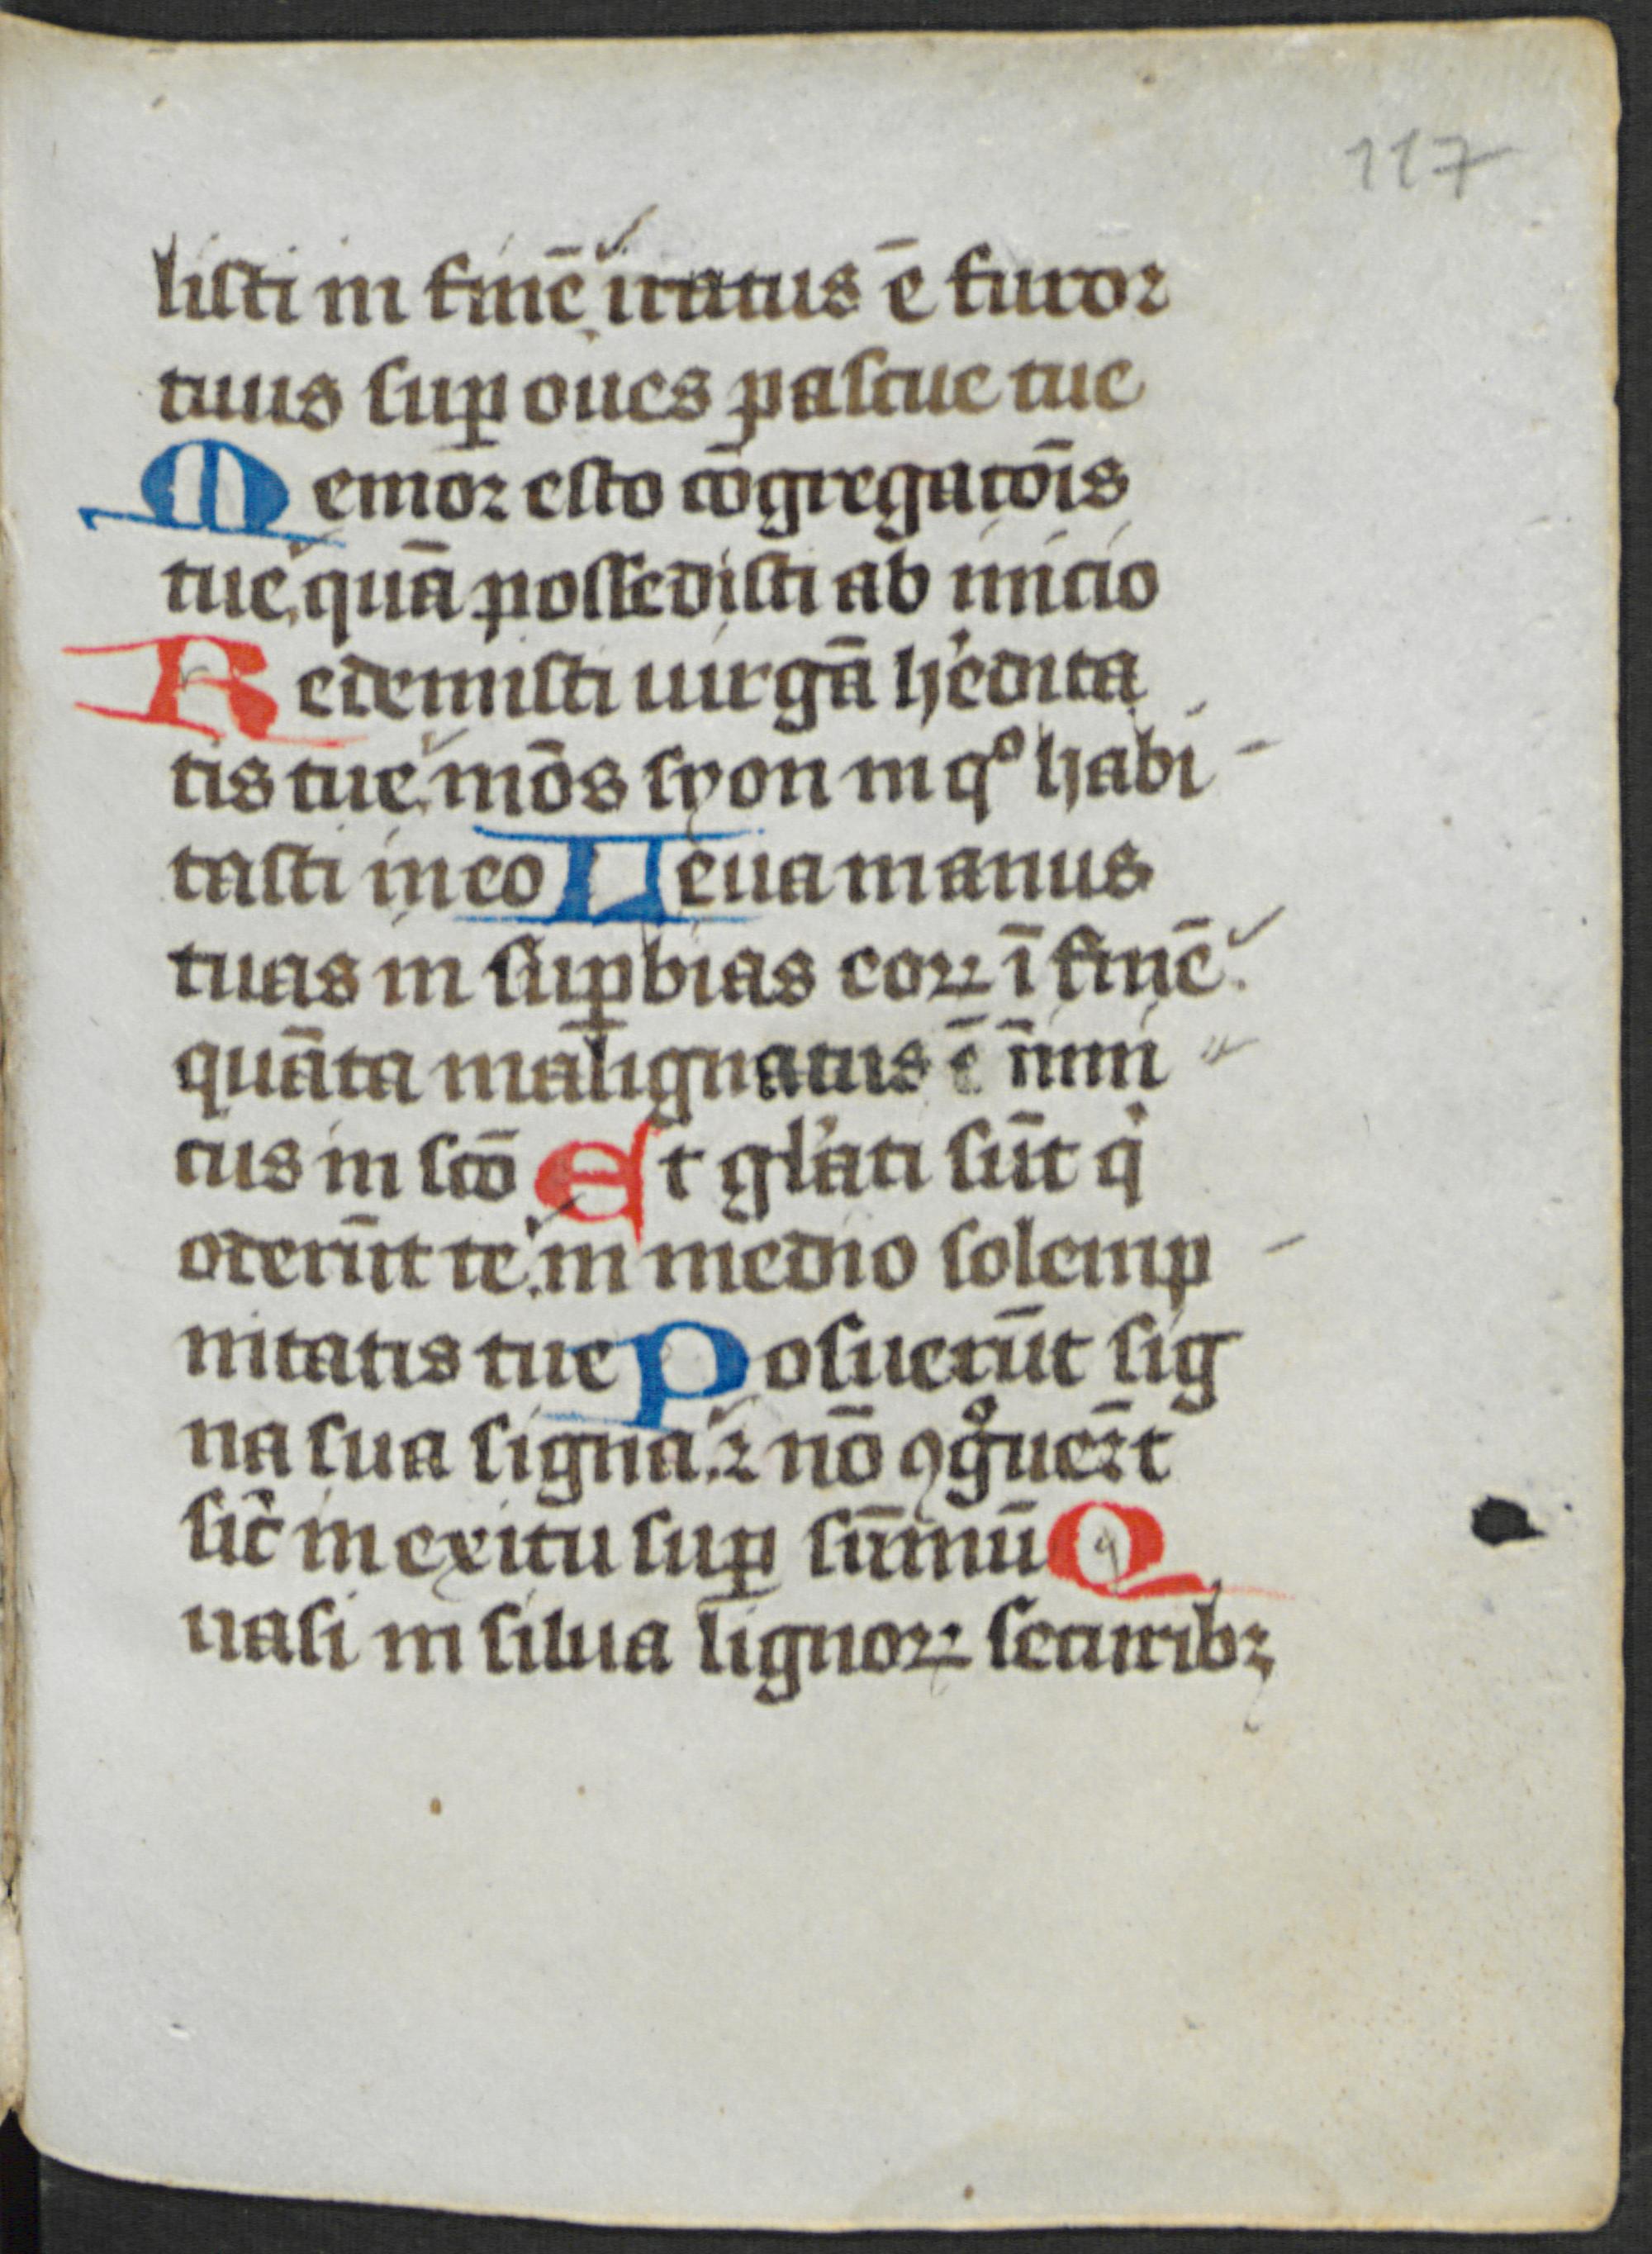 117
listi in finē iratus ē furor
tuus suꝑ oues pascue tue
Memor esto cōgregatōis
tue quā possedisti ab inicio
Redemisti uirgā h̓edita
tis tue mōs syon in qͦ habi-
tasti in eo Leua manus
tuas in suꝑbias eoꝝ ī finē
quāta malignatus ē īnimi
cus in scō Et gl̓ati sūt q̇
oderūt te in medio solemp-
nitatis tue Posuerūt sig
na sua signa ⁊ nō ꝯgͦuer̄t
sic̄ in exitu suꝑ sūmū Q
uasi in silua lignoꝝ securibꝫ